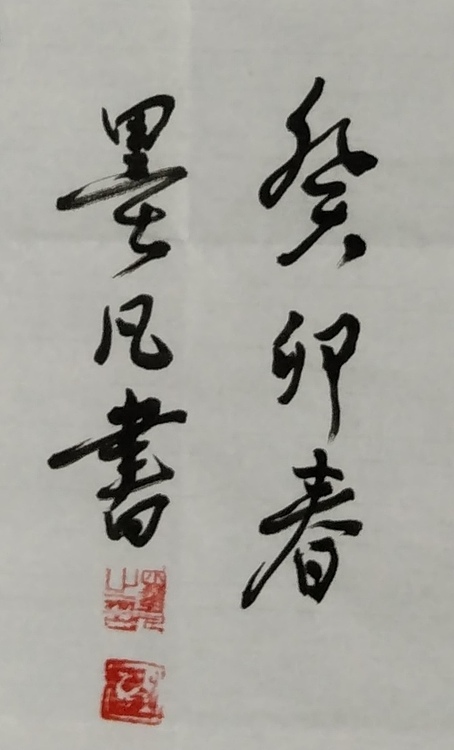 癸卯春
墨凡書